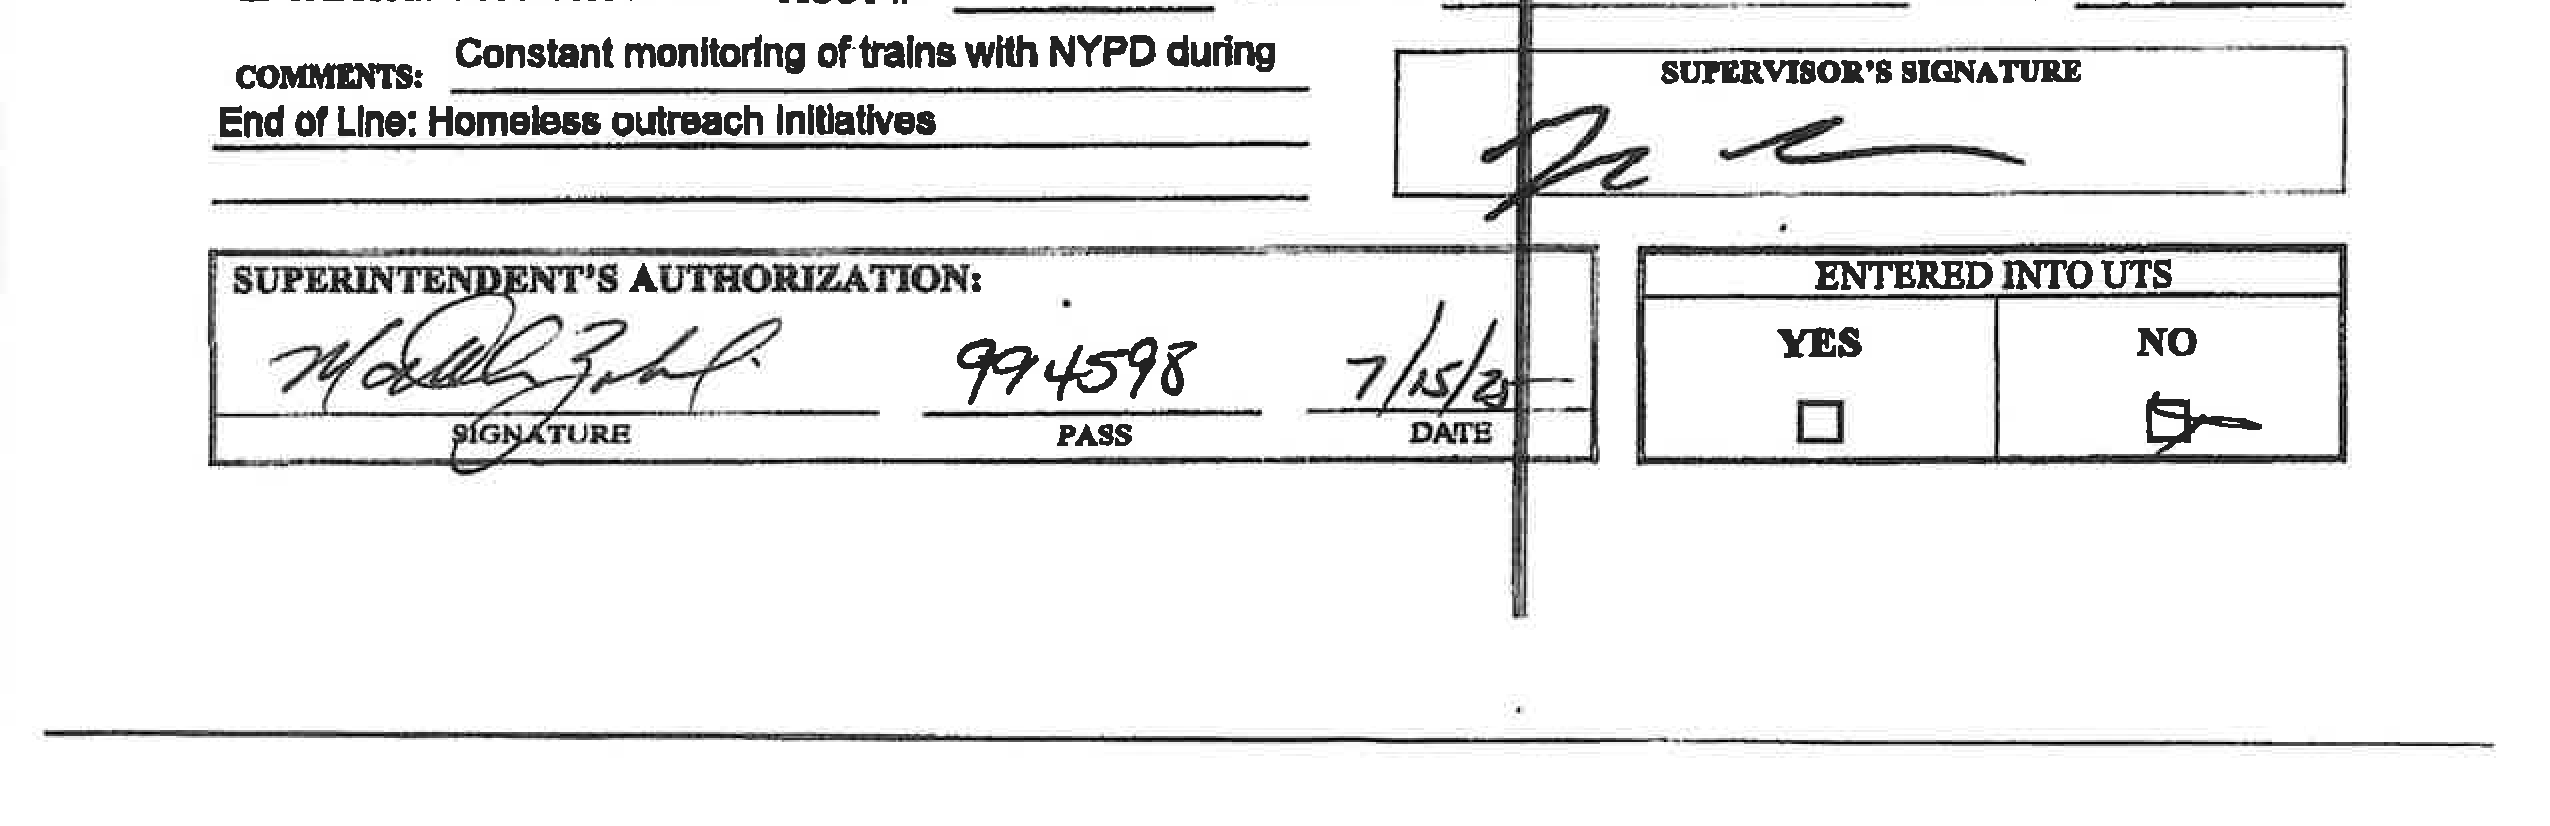 COMMENTS: Constant monitoring of trains with NYPD during
End of Line: Homeless outreach initiatives
SUPERVISOR'S SIGNATURE
SUPERINTENDENT'S AUTHORIZATION:
994598 7/15/25
SIGNATURE PASS DATE
ENTERED INTO UTS
YES NO